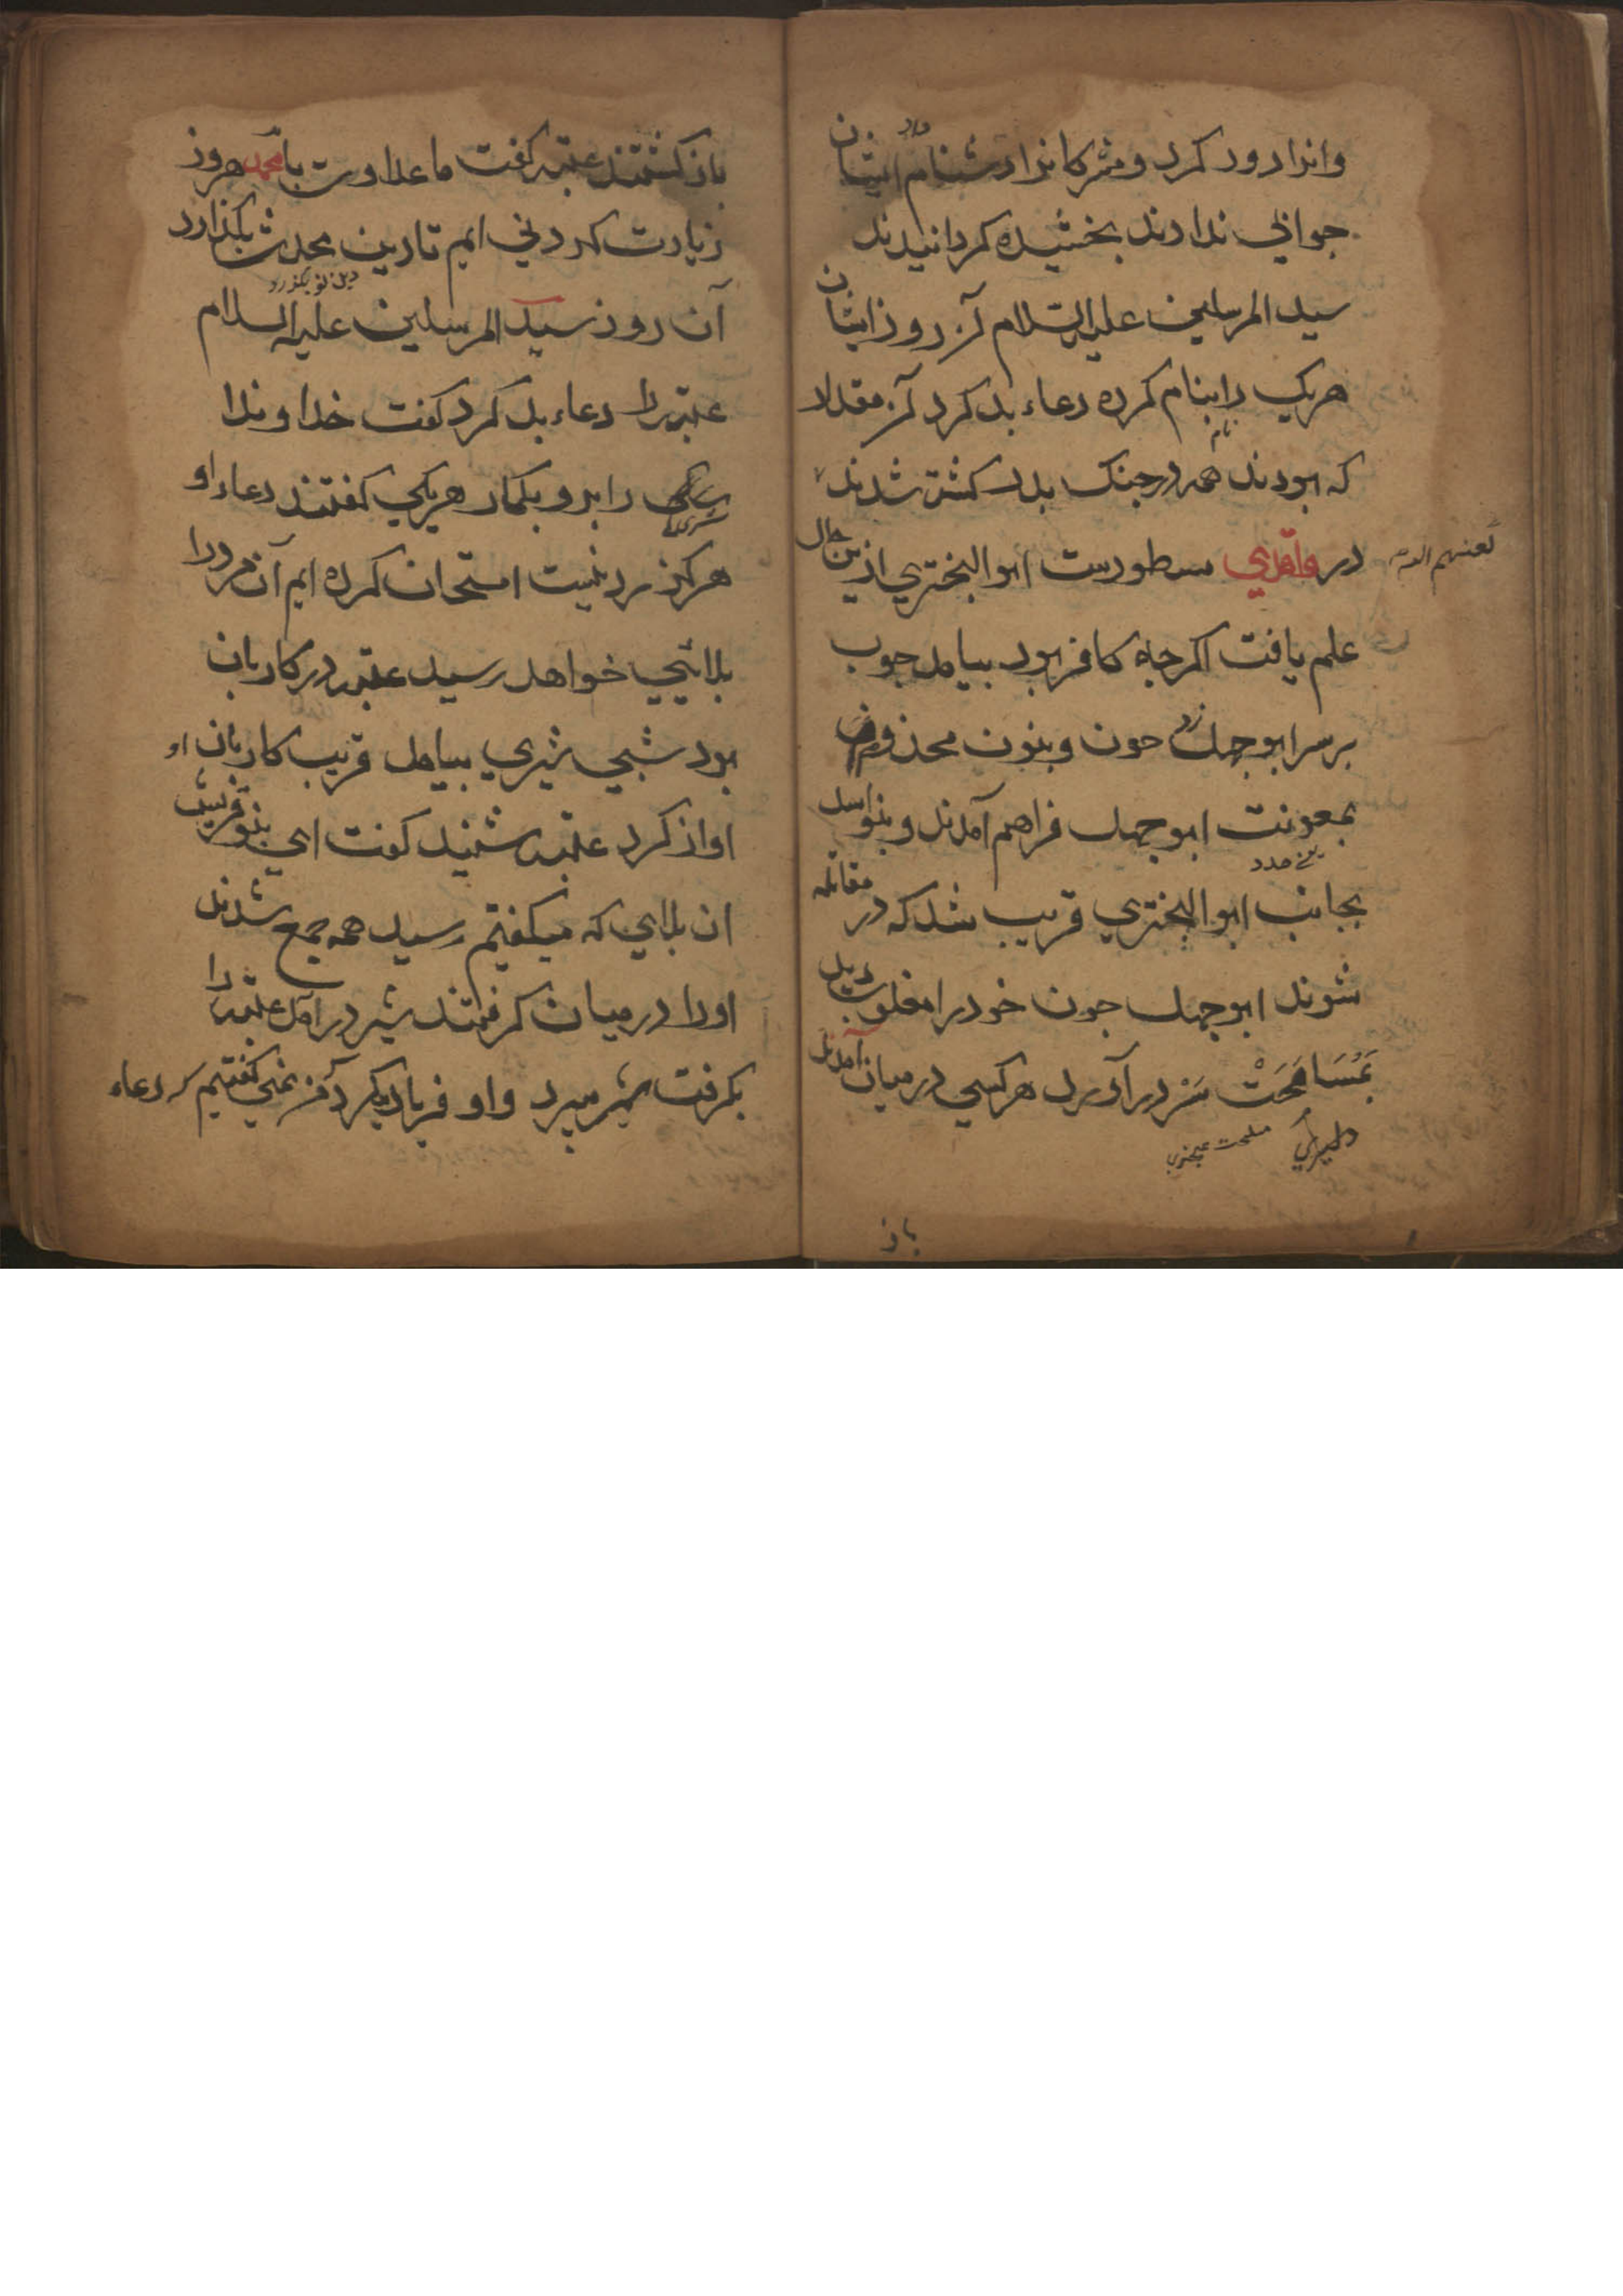 وانرا دور كرد و مشركانرا دشنام داد ایشان
جوابی ندادند بخشیده كردانیدند
سید المرسلین علیه السلام آن روز ایشان
هریك را بنام كرده دعاء بد كرد آن مقدار
كه بودند همه در جنك بدر كشته شدند
در واقدي مسطورست ابو البختري ازین حال
علم یافت اكرجه كافر بود بیامد جوب
بر سر ابوجهل زد جون و بنون مخذوم
بمعونت ابوجهل فراهم آمدند و بنو اسد
یعنی مدد
بجانب ابو البختري قریب شد كه در مقاتله
شوند ابوجهل جون خود را مغلوب دید
بمُسَامَحَتْ سَر در آورد هركسی در میان آمدند
باز
باز كشتند عتبه كفت ما عداوت با محمد هر روز
زیادت كردنی ایم تا دین محدث بكذارد
دین نو بكذرد
آن روز سید المرسلین علیه السلام
عتبه را دعاء بد كرد كفت خداوندا
سكی را برو بكمار هریكی كفتند دعاء او
هركز رد نیست امتحان كرده ایم آن مرد را
بلائیی خواهد رسید عتبه در كاربان
بود شبی شیري بیامد قریب كاربان او
اواز كرد عتبه شنید كفت ای بنو قریش
ان بلاای كه میكفتم رسید همه جمع شدند
اورا در میان كرفتند شیر در آمد عتبه را
بكرفت شیر میبرد و او فریاد میكرد من نمی كفتیم كه دعاء